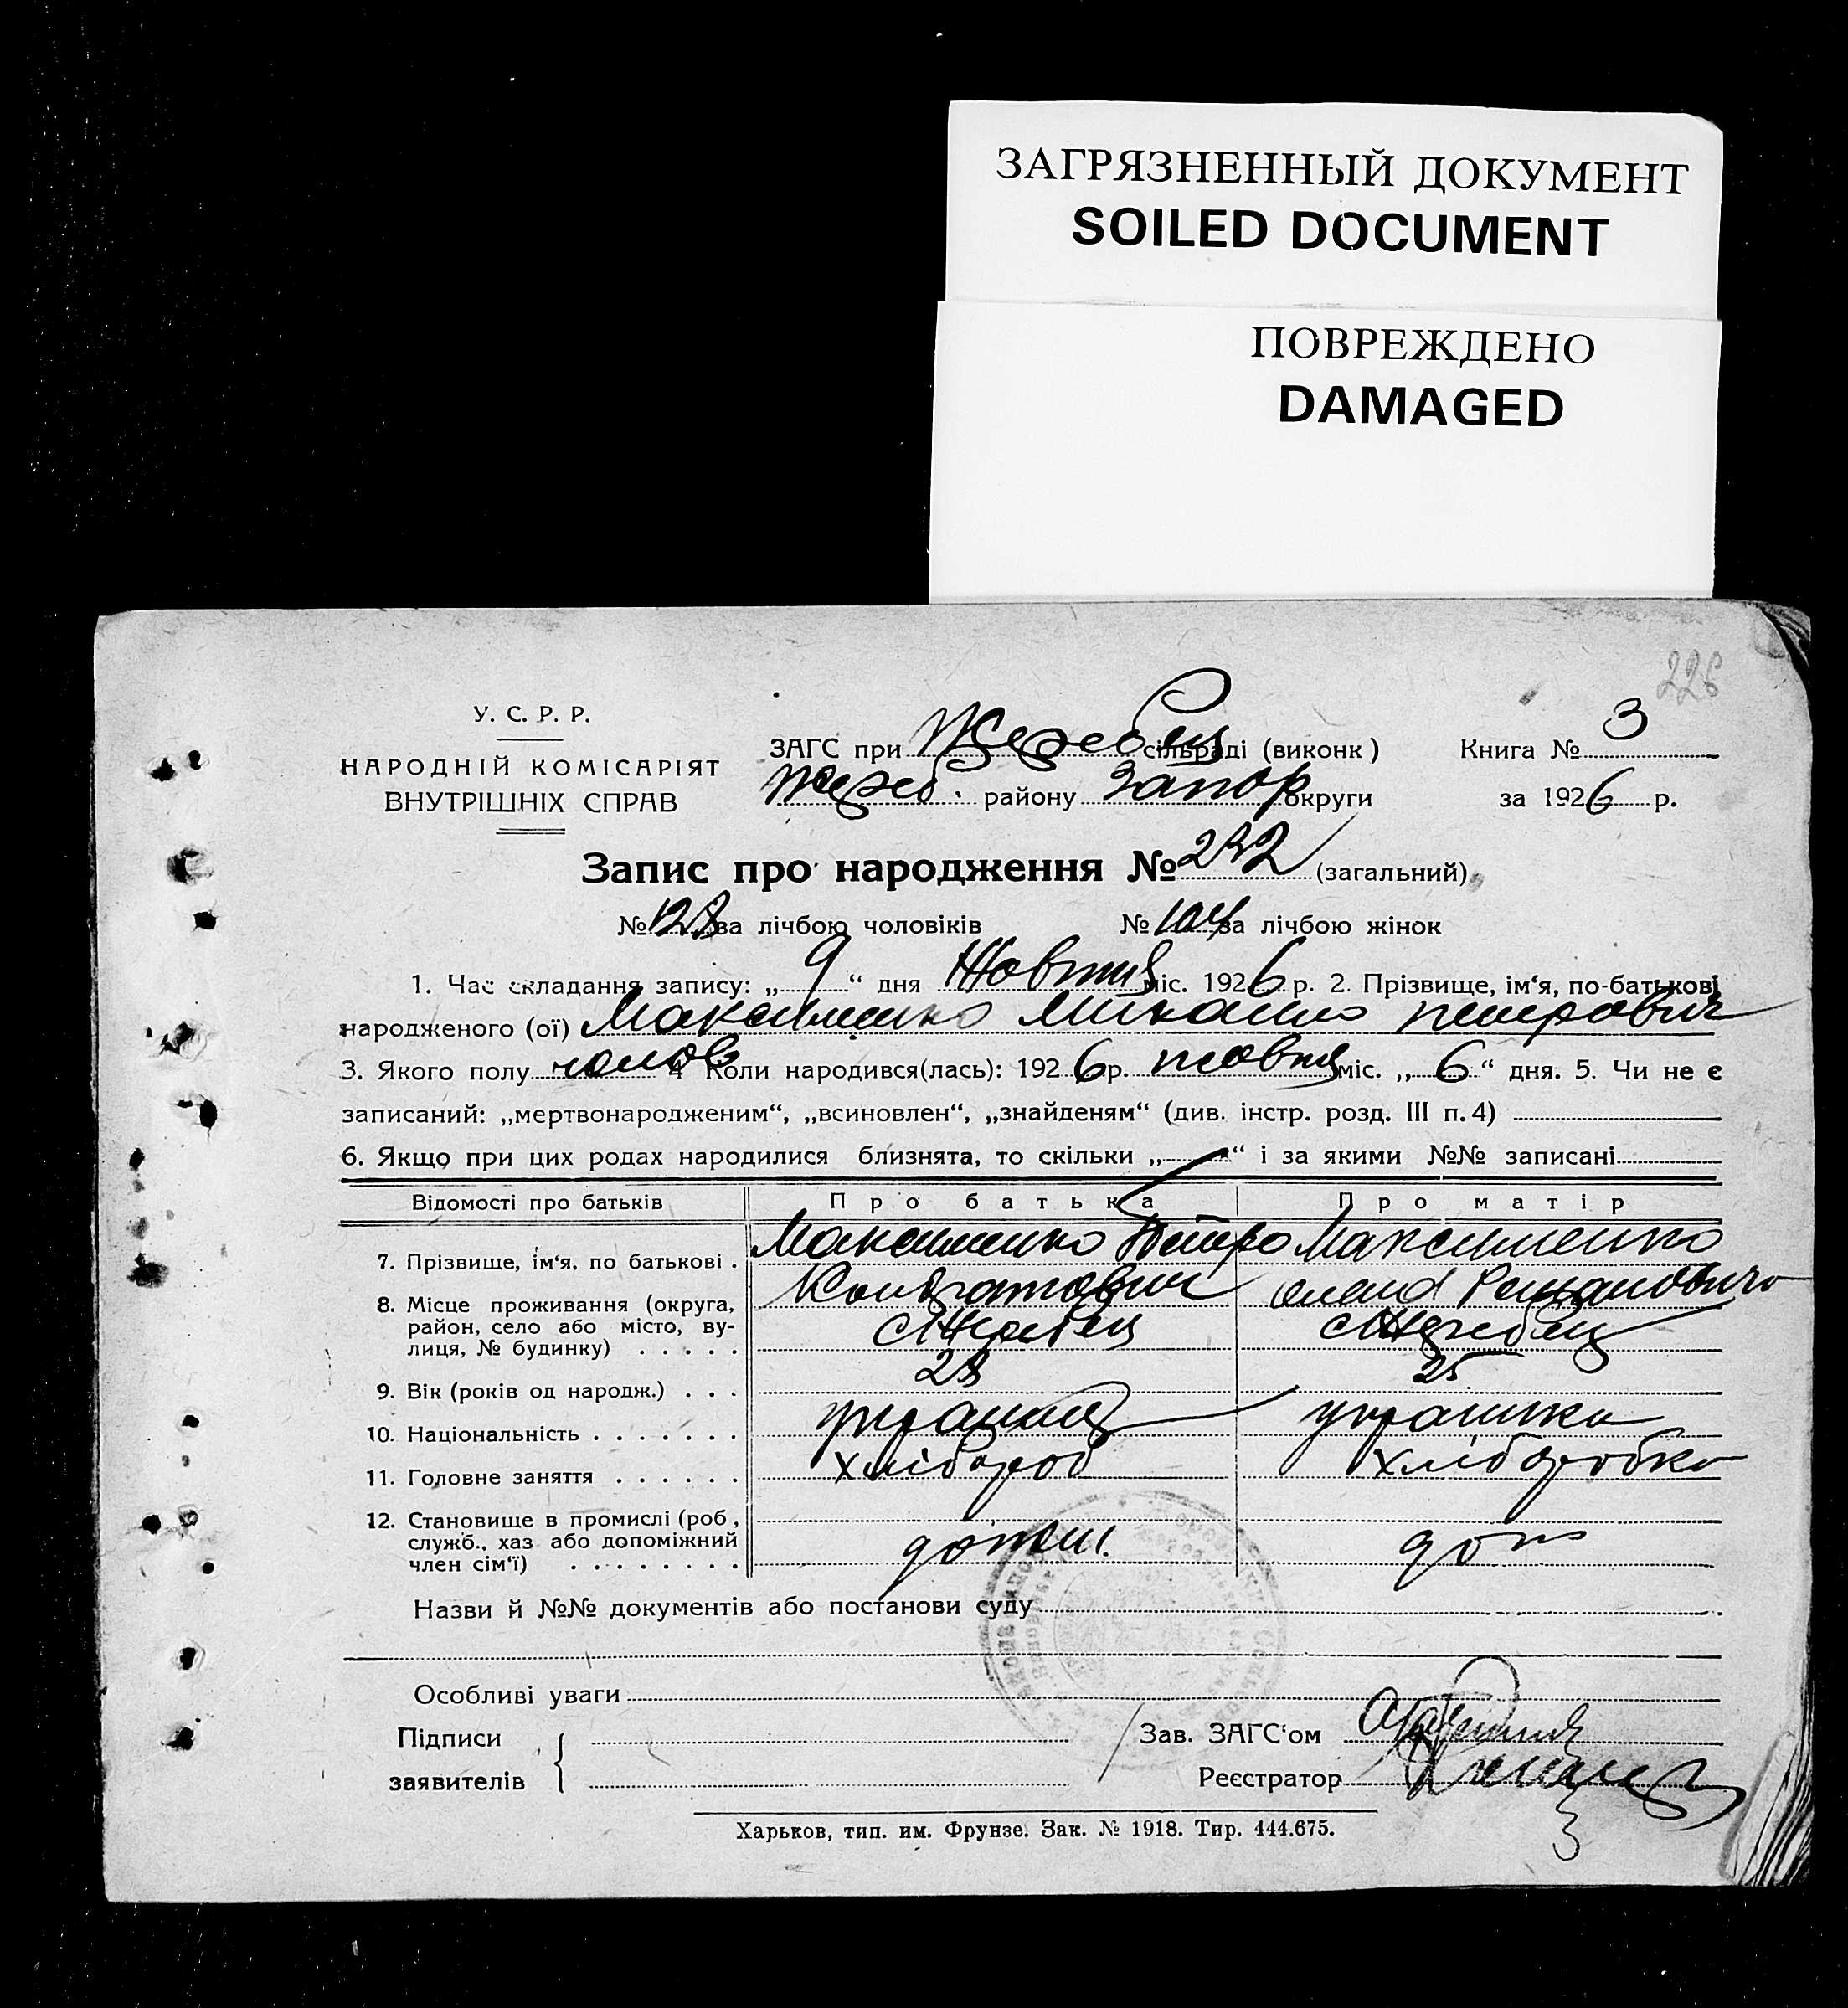 ЗАГРЯЗНЕННЫЙ ДОКУМЕНТ
SOILED DOCUMENT
ПОВРЕЖДЕНО
DAMAGED
226
У. С. Р. Р.
НАРОДНІЙ КОМІСАРІЯТ
ВНУТРІШНІХ СПРАВ
ЗАГС при Жеребец сільраді (виконк)
Жереб. району Запор округи
Книга № 3
за 1926 р.
Запис про народження № 232 (загальний)
№ 128 за лічбою чоловіків № 104 за лічбою жінок
1. Час складання запису: „9“ дня Жовтня міс. 1926 р. 2. Прізвище, ім‘я, по-батькові
народженого (ої) Максименко Михайло петрович
3. Якого полу чолов 4 Коли народився(лась): 1926 р. жовтня міс. „6“ дня. 5. Чи не є
записаний: „мертвонародженим“, „всиновлен“, „знайденям“ (див. інстр. розд. III п. 4)
6. Якщо при цих родах народилися близнята, то скільки „ “ і за якими №№ записані
Відомості про батьків Про батька Про матір
7. Прізвище, ім‘я, по батькові . Максименко Петро Максименко
Кондратович Романовна
8. Місце проживання (округа,
район, село або місто, ву-
лиця, № будинку) . . . . . с Жеребец с Жеребец
9. Вік (років од народж.) . . . 28 25
10. Національність . . . . . . . українець українка
11. Головне заняття . . . . . . хлібороб хліборобка
12. Становище в промислі (роб,
служб., хаз або допоміжний
член сім‘ї) . . . . . . . . допом. доп
Назви й №№ документів або постанови суду
Особливі уваги
Підписи
заявителів
Зав. ЗАГС‘ом
Реєстратор
Харьков, тип. им. Фрунзе. Зак. № 1918. Тир. 444.675.